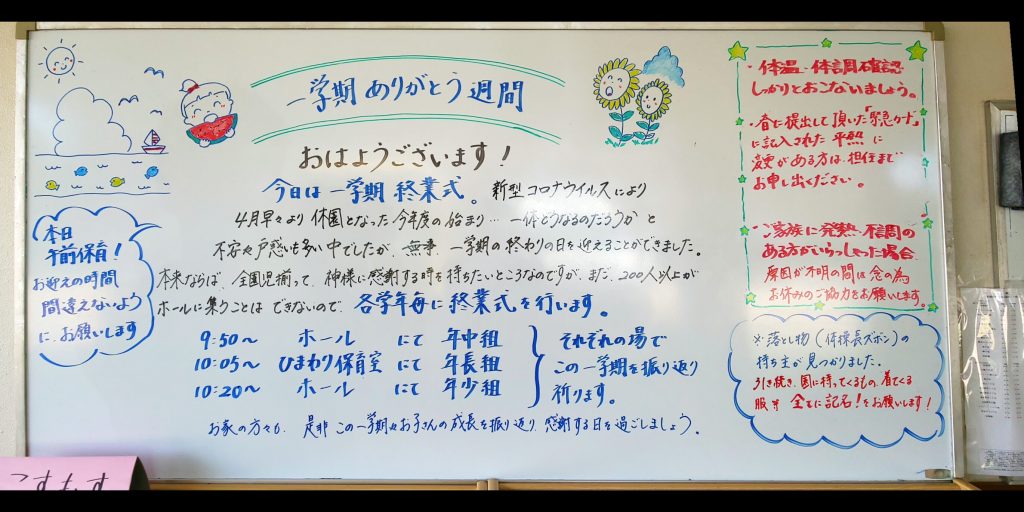 一学期 ありがとう 週間
おはようございます!
今日は 一学期 終業式。 新型コロナウイルスにより
4月早々より 休園となった 今年度の 始まり… 一体どうなるのだろうか と
不安や戸惑いも多い中でしたが、無事、一学期の終わりの日を迎えることができました。
本来ならば、全園児揃って、神様に感謝する時を持ちたいところなのですが、まだ、200人以上が
ホールに集うことは できないので、各学年毎に終業式を行います。
9:50〜 ホール にて 年中組
10:05〜 ひまわり保育室 にて 年長組
10:20〜 ホール にて 年少組
それぞれの場で
この一学期を振り返り
祈ります。
お家の方々も、是非 この一学期のお子さんの成長を振り返り、感謝する日を過ごしましょう。
本日
午前保育!
お迎えの時間
間違えないよう
に、お願いします
・体温・体調確認
しっかりとおこないましょう。
・春に提出して頂いた「緊急カード」
に記入された 平熱 に
変更がある方は、担任まで
お申し出ください。
・ご家族に発熱・不調の
ある方がいらっしゃった場合、
原因が不明の間は念の為
お休みのご協力をお願いします。
※落とし物(体操長ズボン)の
持ち主が見つかりました。
引き続き、園に持ってくるもの、着てくる
服等 全てに記名!をお願いします!
こすもす